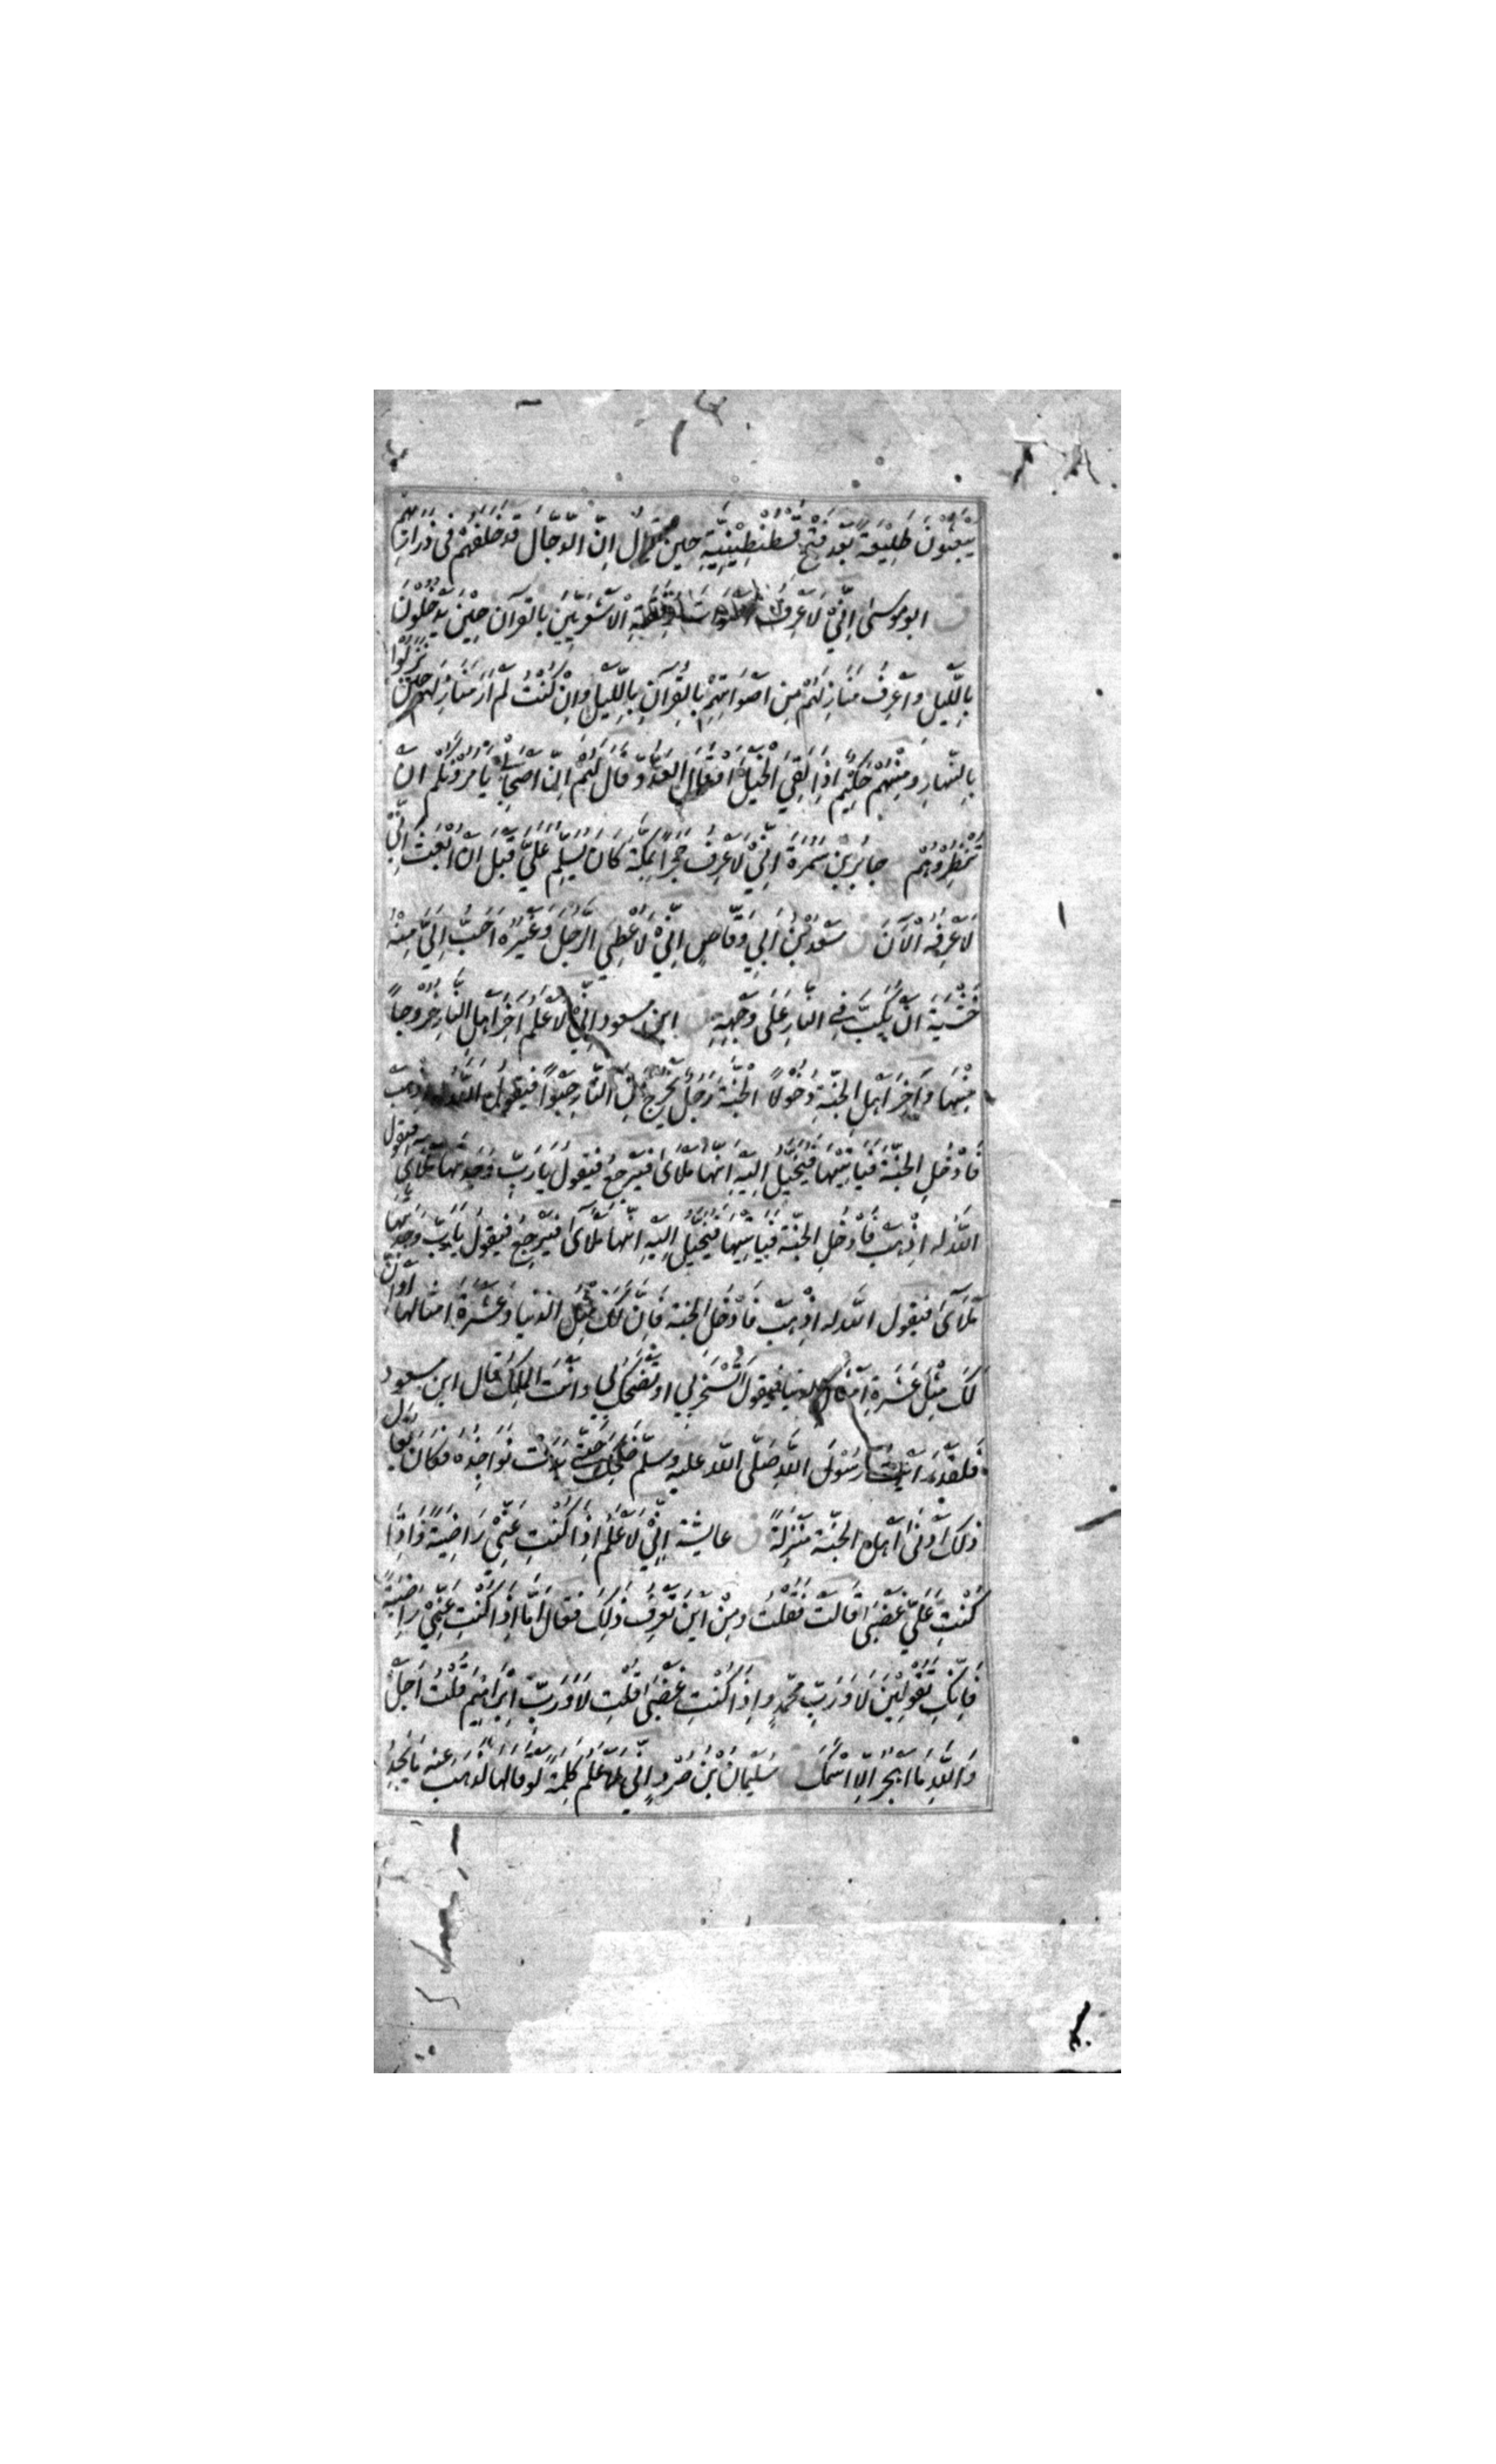 يَبْعَثُونَ طَلِيْعَةً بَعْدَ فَتْحِ قُسْطُنْطِيْنِيَّةِ حين يُقال اِنَّ الدَّجَّالَ قَدْ خَلَفَهُمْ فِى ذَرَارِيْهِمْ
ق ابو موسىٰ اِنِّيْ لَاَعْرِفُ اَصْوَاتَ رُفْقَةِ الْاَشْعَرِيِّيْنَ بِالقرآن حِيْنَ يَدْخُلُوْنَ
بِاللَّيْلِ وَاَعْرِفُ مَنَازِلَهُمْ مِنْ اَصْوَاتِهِمْ بِالقُرآنِ بِاللَّيْلِ وَاِنْ كُنْتُ لَمْ اَرَ مَنَازِلَهُمْ حِيْنَ نَزَلُوْا
بِالنَّهَارِ وَمِنْهُمْ حَكِيْمٌ اِذَا لَقِيَ الْخَيْلَ اَوْقَالَ العَدُوَّ قَالَ لَهُمْ اِنَّ اَصْحَابِيْ يَأْمُرُوْنَكُمْ اَنْ
تَنْظُرُوْهُمْ جَابِرُ بْنُ سَمُرَةَ اِنِّيْ لَاَعْرِفُ حَجَرًا بِمَكَّةَ كَانَ يُسَلِّمُ عَلَيَّ قَبْلَ اَنْ اُبْعَثَ اِنِّيْ
لَاَعْرِفُهُ الْآنَ ق سَعْدُ بْنُ اَبِي وَقَّاصٍ اِنِّيْ لَاُعْطِي الرَّجُلَ وَغَيْرُهُ اَحَبُّ اِلَيَّ مِنْهُ
خَشْيَةَ اَنْ يُكَبَّ فِي النَّارِ عَلَى وَجْهِهِ ابن مسعود اِنِّيْ لَاَعْلَمُ آخِرَ اَهْلِ النَّارِ خُرُوْجًا
مِنْهَا وَآخِرَ اَهْلِ الْجَنَّةِ دُخُوْلًا الْجَنَّةَ رَجُلٌ يَخْرُجُ مِنَ النَّارِ حَبْوًا فَيَقُولُ اللّٰهُ لَهُ اِذْهَبْ
فَادْخُلِ الْجَنَّةَ فَيَأْتِيْهَا فَيُخَيَّلُ اِلَيْهِ اَنَّهَا مَلْأَىٰ فَيَرْجِعُ فَيَقُولُ يَا رَبِّ وَجَدْتُهَا مَلْأَىٰ فيقول
اللّٰهُ لَهُ اذْهَبْ فَادْخُلِ الْجَنَّةَ فَيَأْتِيْهَا فَيُخَيَّلُ اِلَيْهِ اَنَّهَا مَلْآىٰ فَيَرْجِعُ فَيَقُولُ يَا رَبِّ وَجَدْتُهَا
مَلْآىٰ فَيَقُول اللّٰه له اذْهَبْ فَادْخُلِ الجنة فَاِنَّ لَكَ مِثْلَ الدنيا وَعَشَرَةَ امثالها اَوْ اِنَّ
لَكَ مِثْلَ عَشَرَةِ اَمْثَالِ الدنيا فَيَقُولُ اَتَسْخَرُ بِي اَوْ تَضْحَكُ بِي وَاَنْتَ المَلِكُ قال ابن مسعود
فَلَقَدْ رَاَيْتُ رَسُوْلَ اللّٰهِ صَلَّى اللّٰهُ عَلَيْهِ وَسَلَّم ضَحِكَ حَتَّى بَدَتْ نَوَاجِذُهُ فَكَانَ يُقَالُ
ذٰلِكَ اَدْنَىٰ اَهْلِ الْجَنَّةِ مَنْزِلَةً ق عايشة اِنِّيْ لَاَعْلَمُ اِذَا كُنْتِ عَنِّيْ رَاضِيَةً وَاِذَا
كُنْتِ عَلَيَّ غَضْبَىٰ قَالَتْ فَقُلْتُ وَمِنْ اَيْنَ تَعْرِفُ ذٰلِكَ فَقَالَ اَمَّا اِذَا كُنْتِ عَنِّيْ رَاضِيَةً
فَاِنَّكِ تَقُوْلِيْنَ لَا وَرَبِّ مُحَمَّدٍ وَاِذَا كُنْتِ غَضْبَىٰ قُلْتِ لَا وَرَبِّ اِبْرَاهِيْمَ قُلْتُ اَجَلْ
وَاللّٰهِ مَا اَهْجُرُ اِلَّا اسْمَكَ ق سُلَيْمَانُ بْنُ صُرَدٍ اِنِّي لَاَعْلَمُ كَلِمَةً لَوْ قَالَهَا لَذَهَبَ عَنْهُ مَا يَجِدُ